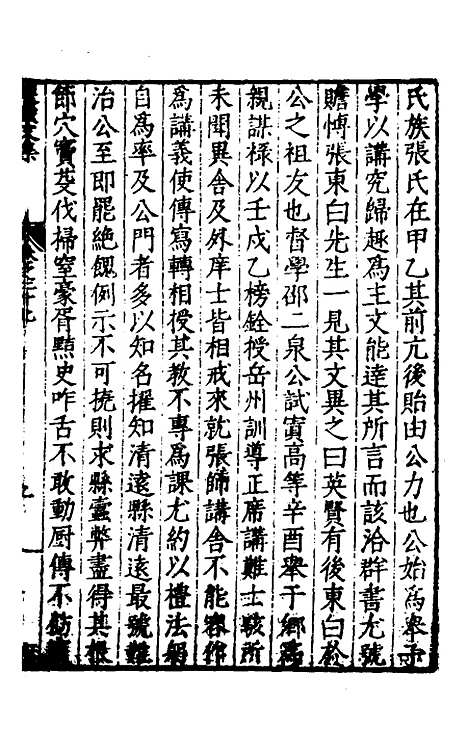 氏族張氏在甲乙其前亢後貽由公力也公始爲舉子
學以講究歸趣爲主文能達其所言而該洽群書尤號
贍愽張東白先生一見其文異之曰英賢有後東白於
公之祖友也督學邵二泉公試寘高等辛酉舉于鄉爲
親謀祿以壬戌乙榜銓授岳州訓導正席講難士駭所
未聞異舍及外庠士皆相戒來就張師講舍不能容作
爲講義使傳寫轉相授其教不專爲課尤約以禮法躬
自爲率及公門者多以知名擢知清遠縣清遠最號難
治公至即罷絶餽例示不可撓則求縣蠧弊盡得其根
節穴竇芟伐掃窒豪胥黠史咋舌不敢動厨傳不飭
卷之十九